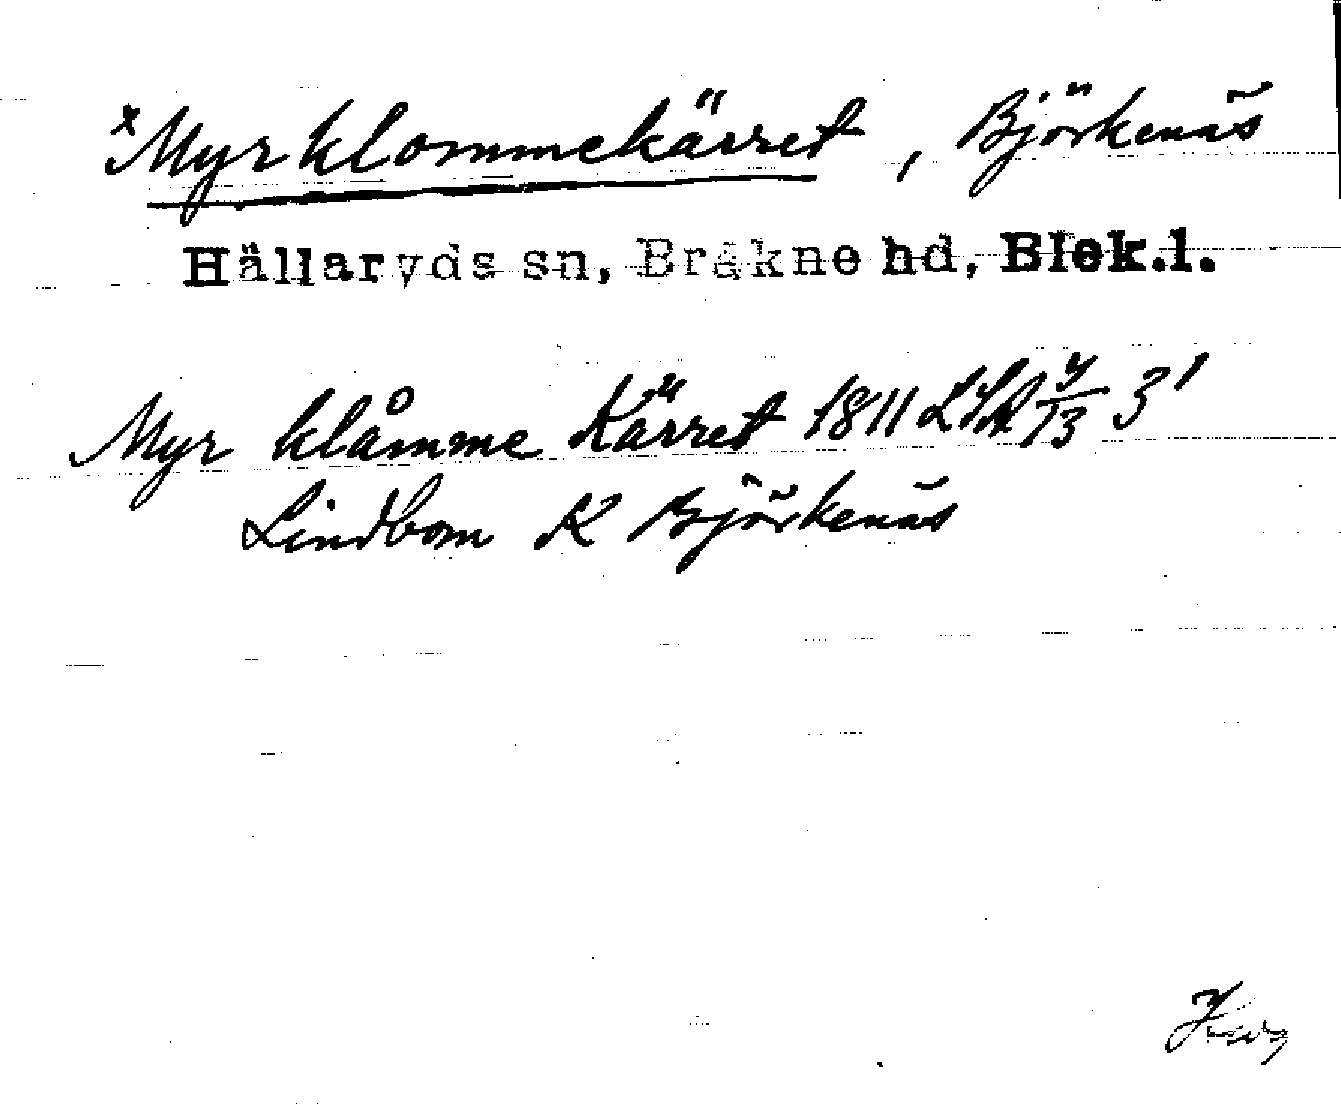 x Myrklommekärret, Björkenäs
Hällaryds sn, Bräkne hd, Blek.l.
Myr klåmme Kärret 1811 LSA 4/13 3'
Lindbom K Björkenäs